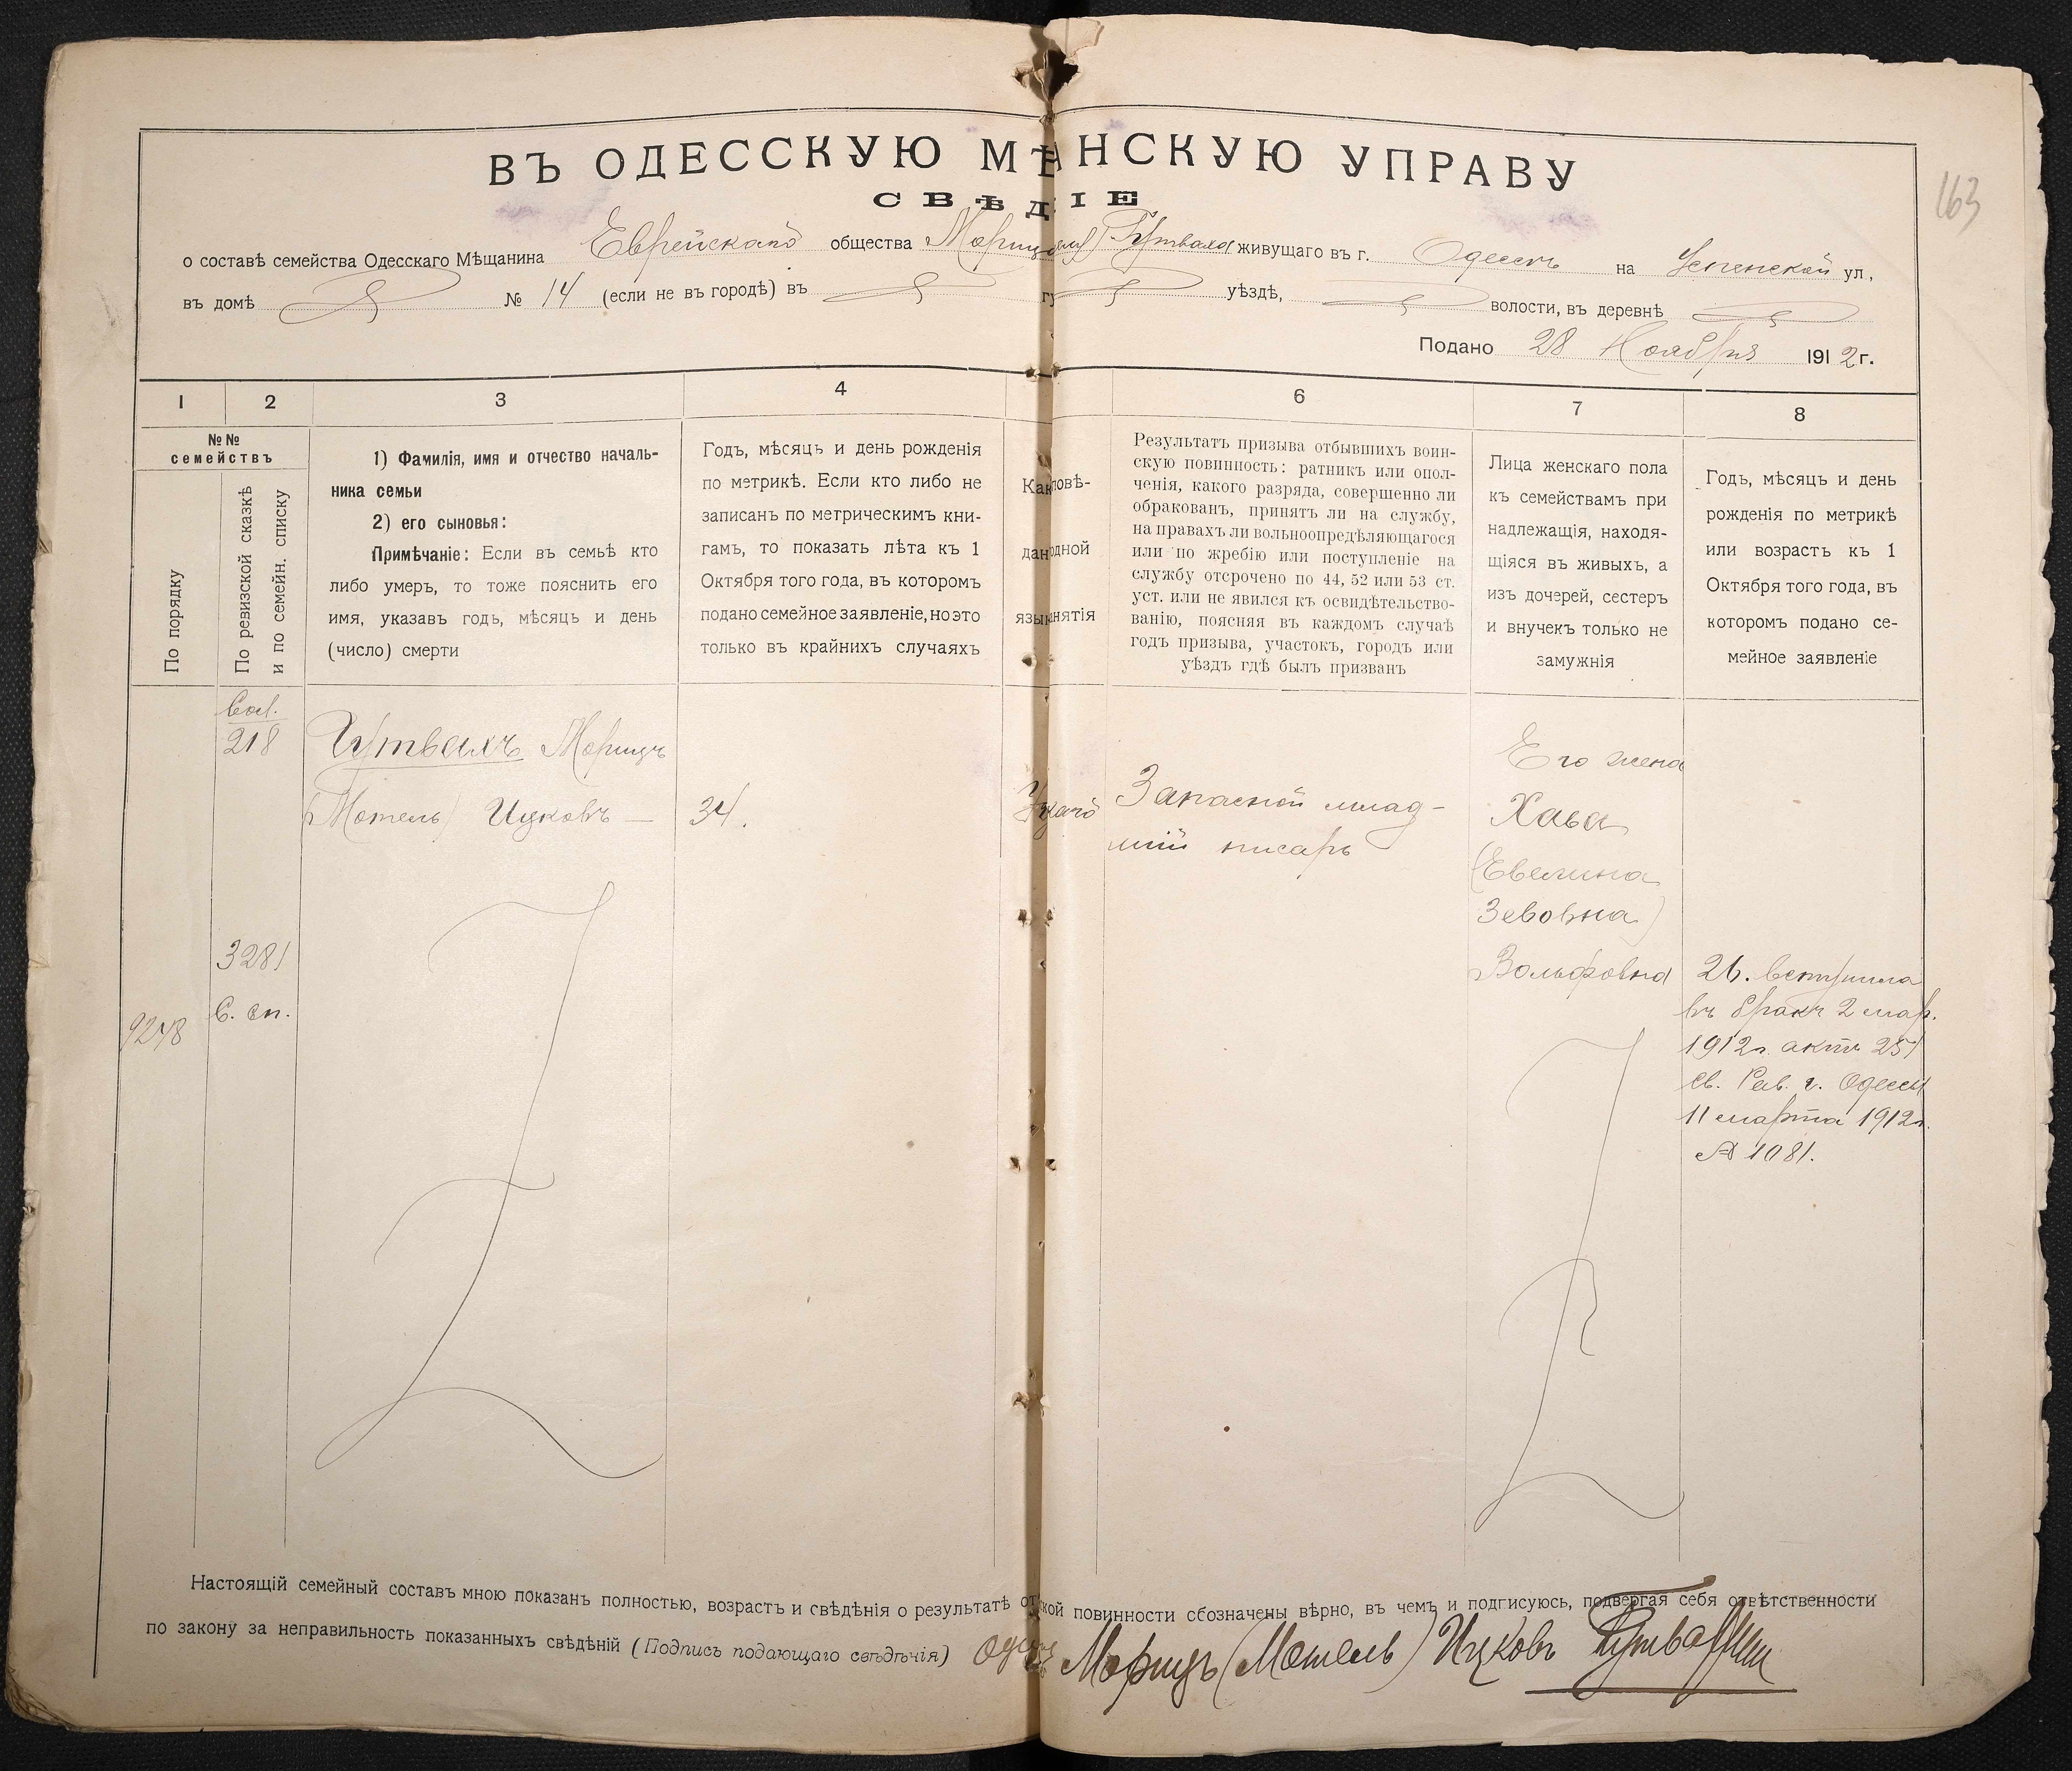 163
ВЪ ОДЕССКУЮ МѢ НСКУЮ УПРАВУ
СВѢД ІЕ
о составѣ семейства Одесскаго Мѣщанина Еврейскаго общества Гутваха живущаго въ г. Одессѣ на Успенской ул,
въ домѣ № 14 (если не въ городѣ) въ гу уѣздѣ, волости, въ деревнѣ
Подано 28 Ноября 1912 г.
1 2 3 4 6 7 8
№№
семействъ
По порядку
По ревизской сказкѣ
и по семейн. списку
1) Фамилія, имя и отчество началь-
ника семьи
2) его сыновья:
Примѣчаніе: Если въ семьѣ кто
либо умеръ, то тоже пояснить его
имя, указавъ годъ, мѣсяцъ и день
(число) смерти
Годъ, мѣсяцъ и день рожденія
по метрикѣ. Если кто либо не
записанъ по метрическимъ кни-
гамъ, то показать лѣта къ 1
Октября того года, въ которомъ
подано семейное заявленіе, но это
только въ крайнихъ случаяхъ
Как повѣ-
дан одной
язы нятія
Результатъ призыва отбывшихъ воин-
скую повинность: ратникъ или опол-
ченія, какого разряда, совершенно ли
обракованъ, принятъ ли на службу,
на правахъ ли вольноопредѣляющагося
или по жребію или поступленіе на
службу отсрочено по 44, 52 или 53 ст.
уст. или не явился къ освидѣтельство-
ванію, поясняя въ каждомъ случаѣ
годъ призыва, участокъ, городъ или
уѣздъ гдѣ былъ призванъ
Лица женскаго пола
къ семействамъ при
надлежащія, находя-
щіяся въ живыхъ, а
изъ дочерей, сестеръ
и внучекъ только не
замужнія
Годъ, мѣсяцъ и день
рожденія по метрикѣ
или возрастъ къ 1
Октября того года, въ
которомъ подано се-
мейное заявленіе
218
Гутвахъ Морицъ
(Мотель) Ицковъ — 34.
3281
С. сп.
9248
Запасной млад-
шій писарь
Его жена
Хава
(Евелина
Зевовна)
Вольфовна
26. вступила
въ бракъ 2 мар.
1912г. актъ 251
св. Рав. г. Одессы
11 марта 1912г.
№ 1081.
Настоящій семейный составъ мною показанъ полностью, возрастъ и свѣдѣнія о результатѣ от ской повинности обозначены вѣрно, въ чемъ и подписуюсь, подвергая себя отвѣтственности
по закону за неправильность показанныхъ свѣдѣній (Подпись подающаго свѣдѣнія) Морицъ (Мотель) Ицковъ